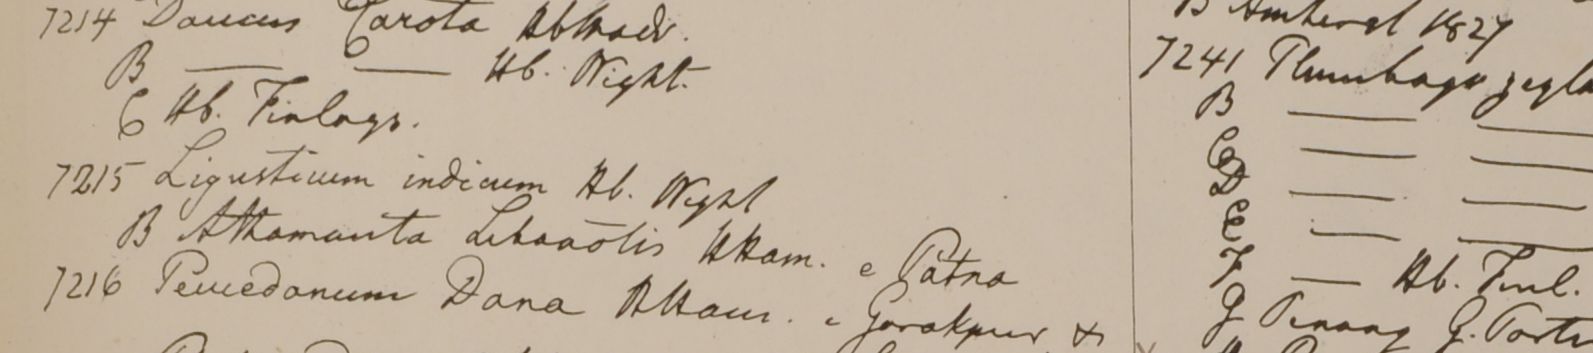 7214 Daucus Carota HbMadr.
B — — Hb. Wight.
C Hb. Finlays.
7215 Ligusticum indicum Hb. Wight
B Athamanta Libanotis HHam. e Patna
7216 Peucedanum Dana HHam. e Gorakpur &
B Amherst 1827
7241 Plumbago zeyla
B — —
C — —
D — —
E — —
F — Hb. Finl.
G Penang G. Porter